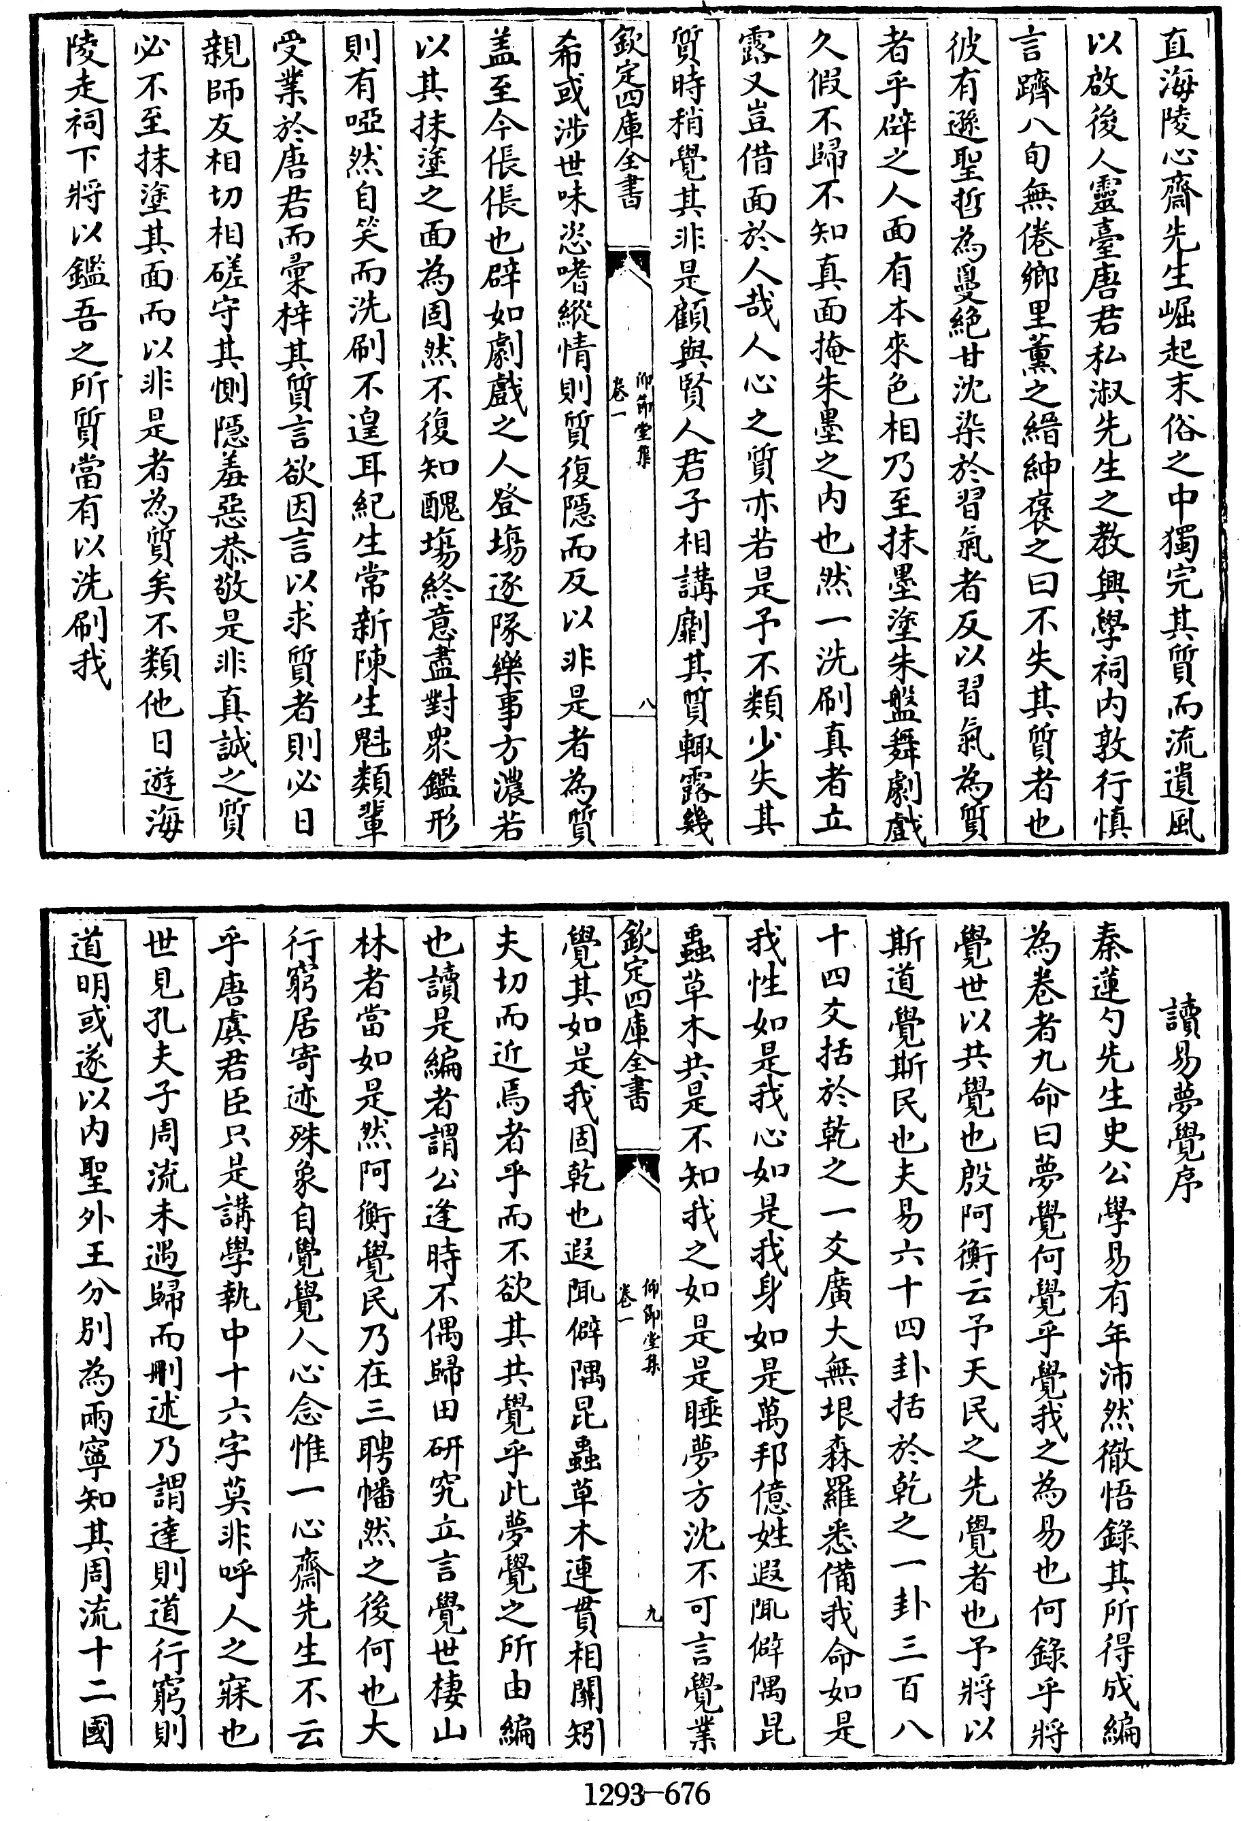 直海陵心齋先生崛起末俗之中獨完其質而流遺風
以啟後人靈臺唐君私淑先生之教興學祠内敦行慎
言躋八旬無倦鄉里薰之縉紳褒之曰不失其質者也
彼有遜聖哲為敻絶甘沈染於習氣者反以習氣為質
者乎辟之人面有本來色相乃至抹墨塗朱盤舞劇戲
久假不歸不知真面掩朱墨之内也然一洗刷真者立
露又豈借面於人哉人心之質亦若是予不類少失其
質時稍覺其非是顧與賢人君子相講劘其質輙露幾
欽定四庫全書
仰節堂集
卷一
八
希或涉世味恣嗜縱情則質復隱而反以非是者為質
盖至今倀倀也辟如劇戲之人登塲逐隊樂事方濃若
以其抹塗之面為固然不復知醜塲終意盡對衆鑑形
則有啞然自笑而洗刷不遑耳紀生常新陳生魁類輩
受業於唐君而彚梓其質言欲因言以求質者則必日
親師友相切相磋守其惻隱羞惡恭敬是非真誠之質
必不至抹塗其面而以非是者為質矣不類他日遊海
陵走祠下將以鑑吾之所質當有以洗刷我
讀易夢覺序
秦蓮勺先生史公學易有年沛然徹悟錄其所得成編
為卷者九命曰夢覺何覺乎覺我之為易也何錄乎將
覺世以共覺也殷阿衡云予天民之先覺者也予將以
斯道覺斯民也夫易六十四卦括於乾之一卦三百八
十四爻括於乾之一爻廣大無垠森羅悉備我命如是
我性如是我心如是我身如是萬邦億姓遐陬僻隅昆
蟲草木共是不知我之如是是睡夢方沈不可言覺業
欽定四庫全書
仰節堂集
卷一
九
覺其如是我固乾也遐陬僻隅昆蟲草木連貫相關矧
夫切而近焉者乎而不欲其共覺乎此夢覺之所由編
也讀是編者謂公逢時不偶歸田研究立言覺世棲山
林者當如是然阿衡覺民乃在三聘幡然之後何也大
行窮居寄迹殊象自覺覺人心念惟一心齋先生不云
乎唐虞君臣只是講學執中十六字莫非呼人之寐也
世見孔夫子周流未遇歸而刪述乃謂達則道行窮則
道明或遂以内聖外王分別為兩寧知其周流十二國
1293-676